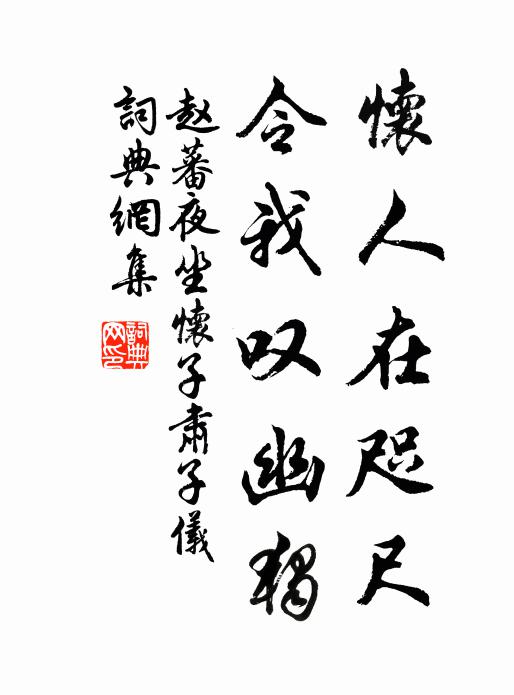 懷人在咫尺
令我叹幽獨
赵蕃夜坐懷子肅子儀
詞典網集
詞典網印